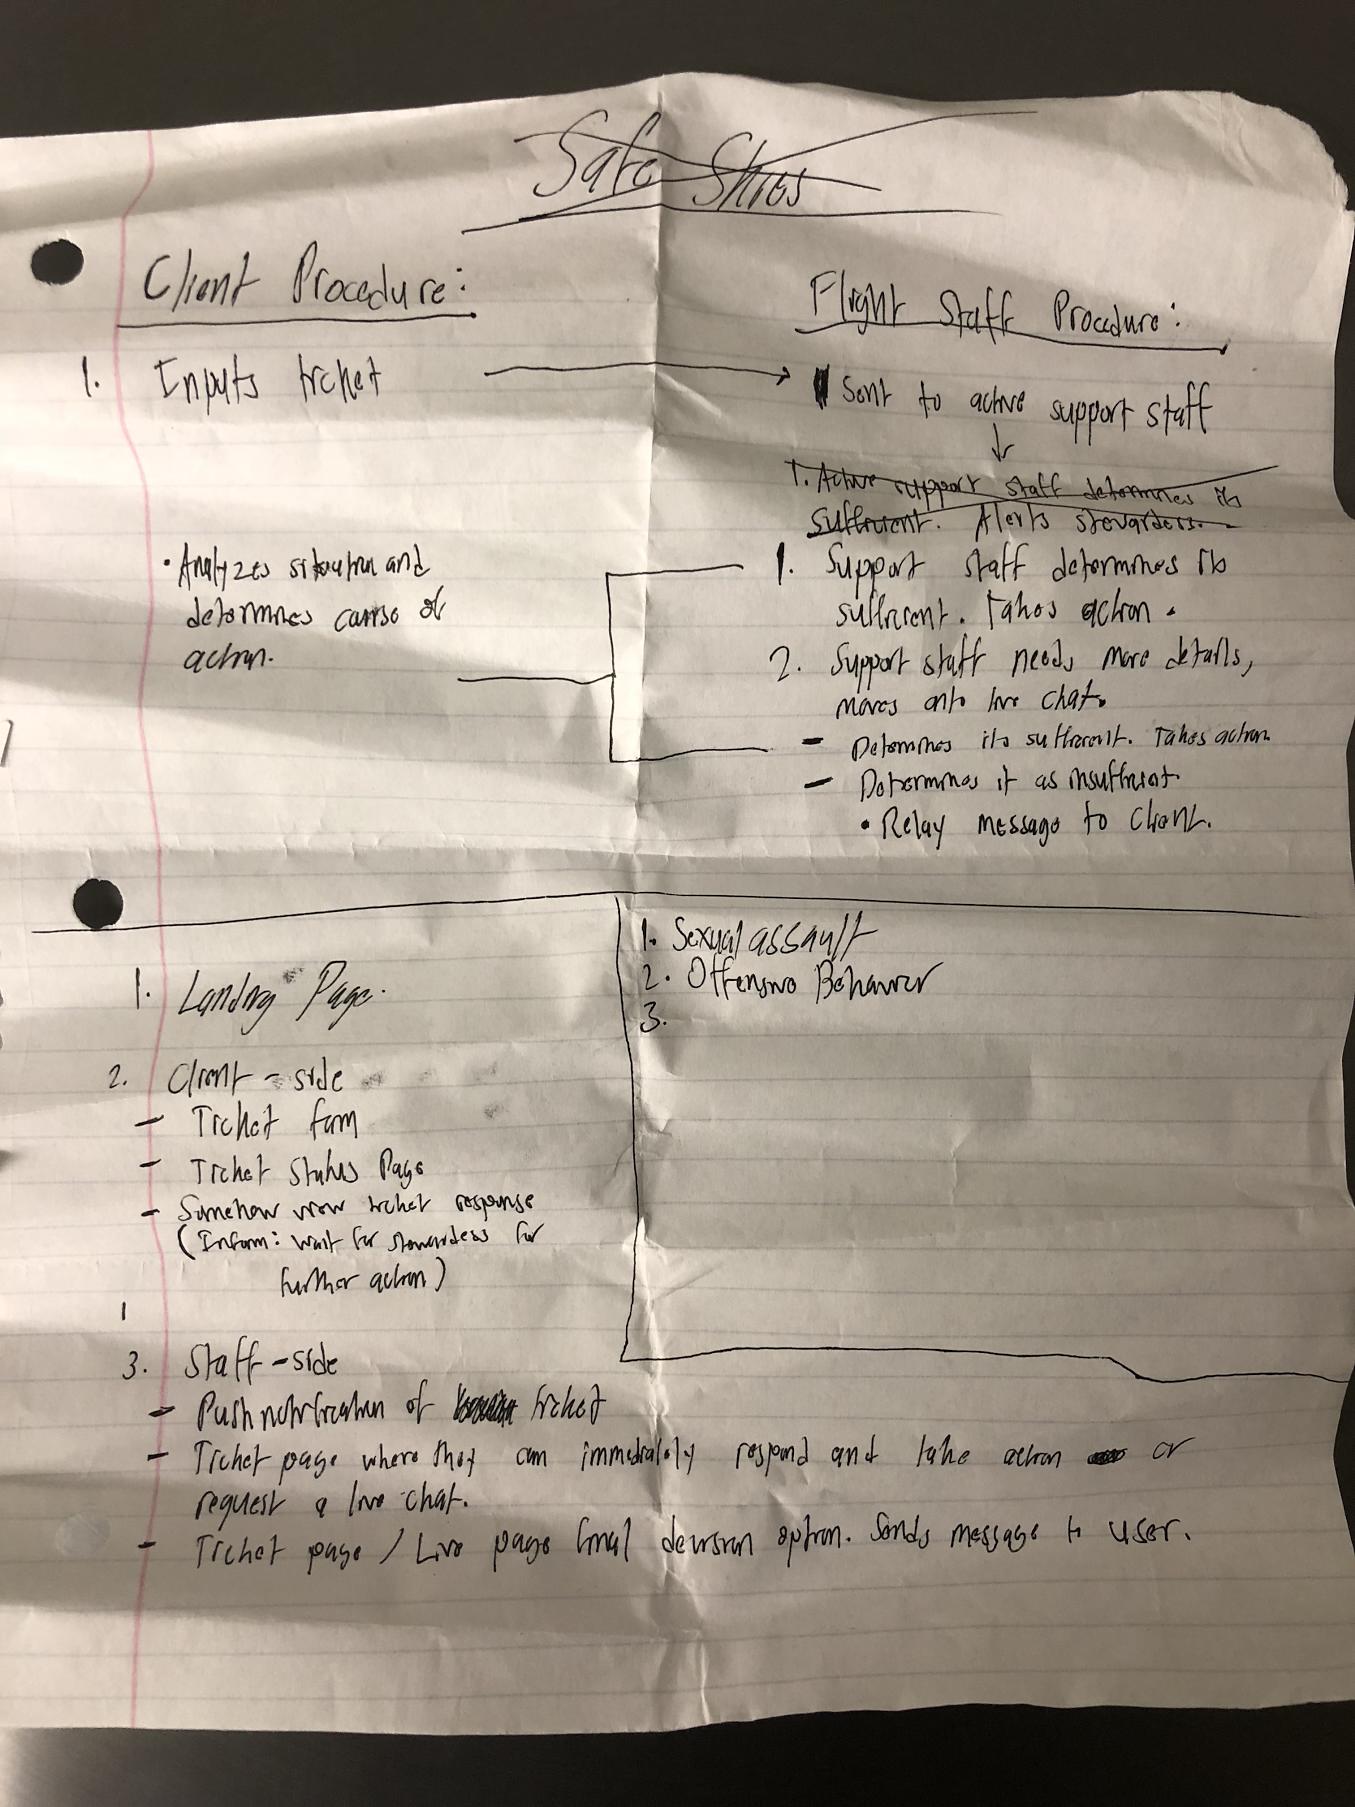 Safe Skies
Client Procedure:
1. Inputs ticket
• Analyzes situation and
determines course of
action.
Flight Staff Procedure:
Sent to active support staff
1. Active support staff determines its
sufficient. Alerts stewardess.
1. Support staff determines its
sufficient. Takes action.
2. Support staff needs more details,
moves onto live chat.
- Determines its sufficient. Takes action.
- Determines it as insufficient.
• Relay message to client.
1. Landing Page.
2. Client-side
- Ticket form
- Ticket Status Page
- Somehow view ticket response
(Inform: wait for stewardess for
further action)
1. Sexual assault
2. Offensive Behavior
3.
3. Staff-side
- Push notification of ticket
- Ticket page where they can immediately respond and take action or
request a live chat.
- Ticket page / Live page final decision option. Sends message to user.